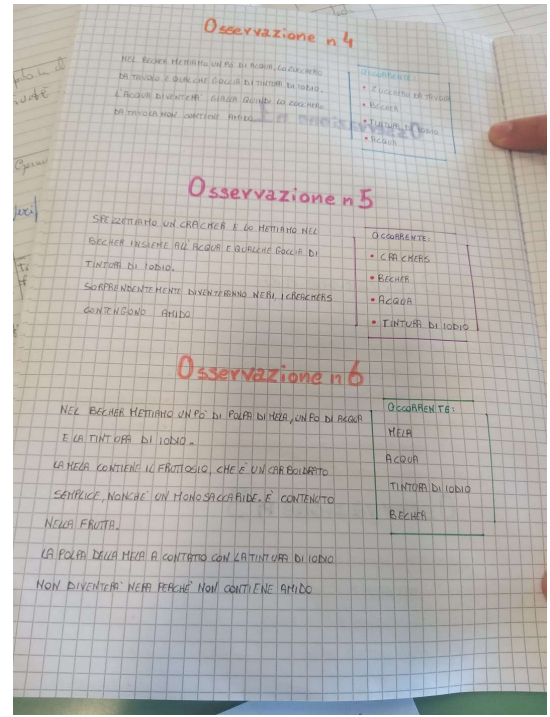 Osservazione n 4
NEL BECHER METTIAMO UN PO DI ACQUA, LO ZUCCHERO
DA TAVOLO E QUALCHE GOCCIA DI TINTURA DI IODIO.
L'ACQUA DIVENTERA' GIALLA QUINDI LO ZUCCHERO
DA TAVOLA NON CONTIENE AMIDO
OCCORRENTE:
• ZUCCHERO DA TAVOLA
• BECHER
• TINTURA IODIO
• ACQUA
Osservazione n 5
SPEZZETTIAMO UN CRACHER E LO METTIAMO NEL
BECHER INSIEME ALL'ACQUA E QUALCHE GOCCIA DI
TINTURA DI IODIO.
SORPRENDENTEMENTE DIVENTERANNO NERI, I CREACHERS
CONTENGONO AMIDO
OCCORRENTE:
• CRACHERS
• BECHER
• ACQUA
• TINTURA DI IODIO
Osservazione n 6
NEL BECHER METTIAMO UN PO' DI POLPA DI MELA, UN PO DI ACQUA
E LA TINTURA DI IODIO.
LA MELA CONTIENE IL FRUTTOSIO, CHE E' UN CARBOIDRATO
SEMPLICE, NONCHE' UN MONOSACCARIDE. E' CONTENUTO
NELLA FRUTTA.
LA POLPA DELLA MELA A CONTATTO CON LA TINTURA DI IODIO
NON DIVENTERA' NERA PERCHE' NON CONTIENE AMIDO
OCCORRENTE:
MELA
ACQUA
TINTURA DI IODIO
BECHER